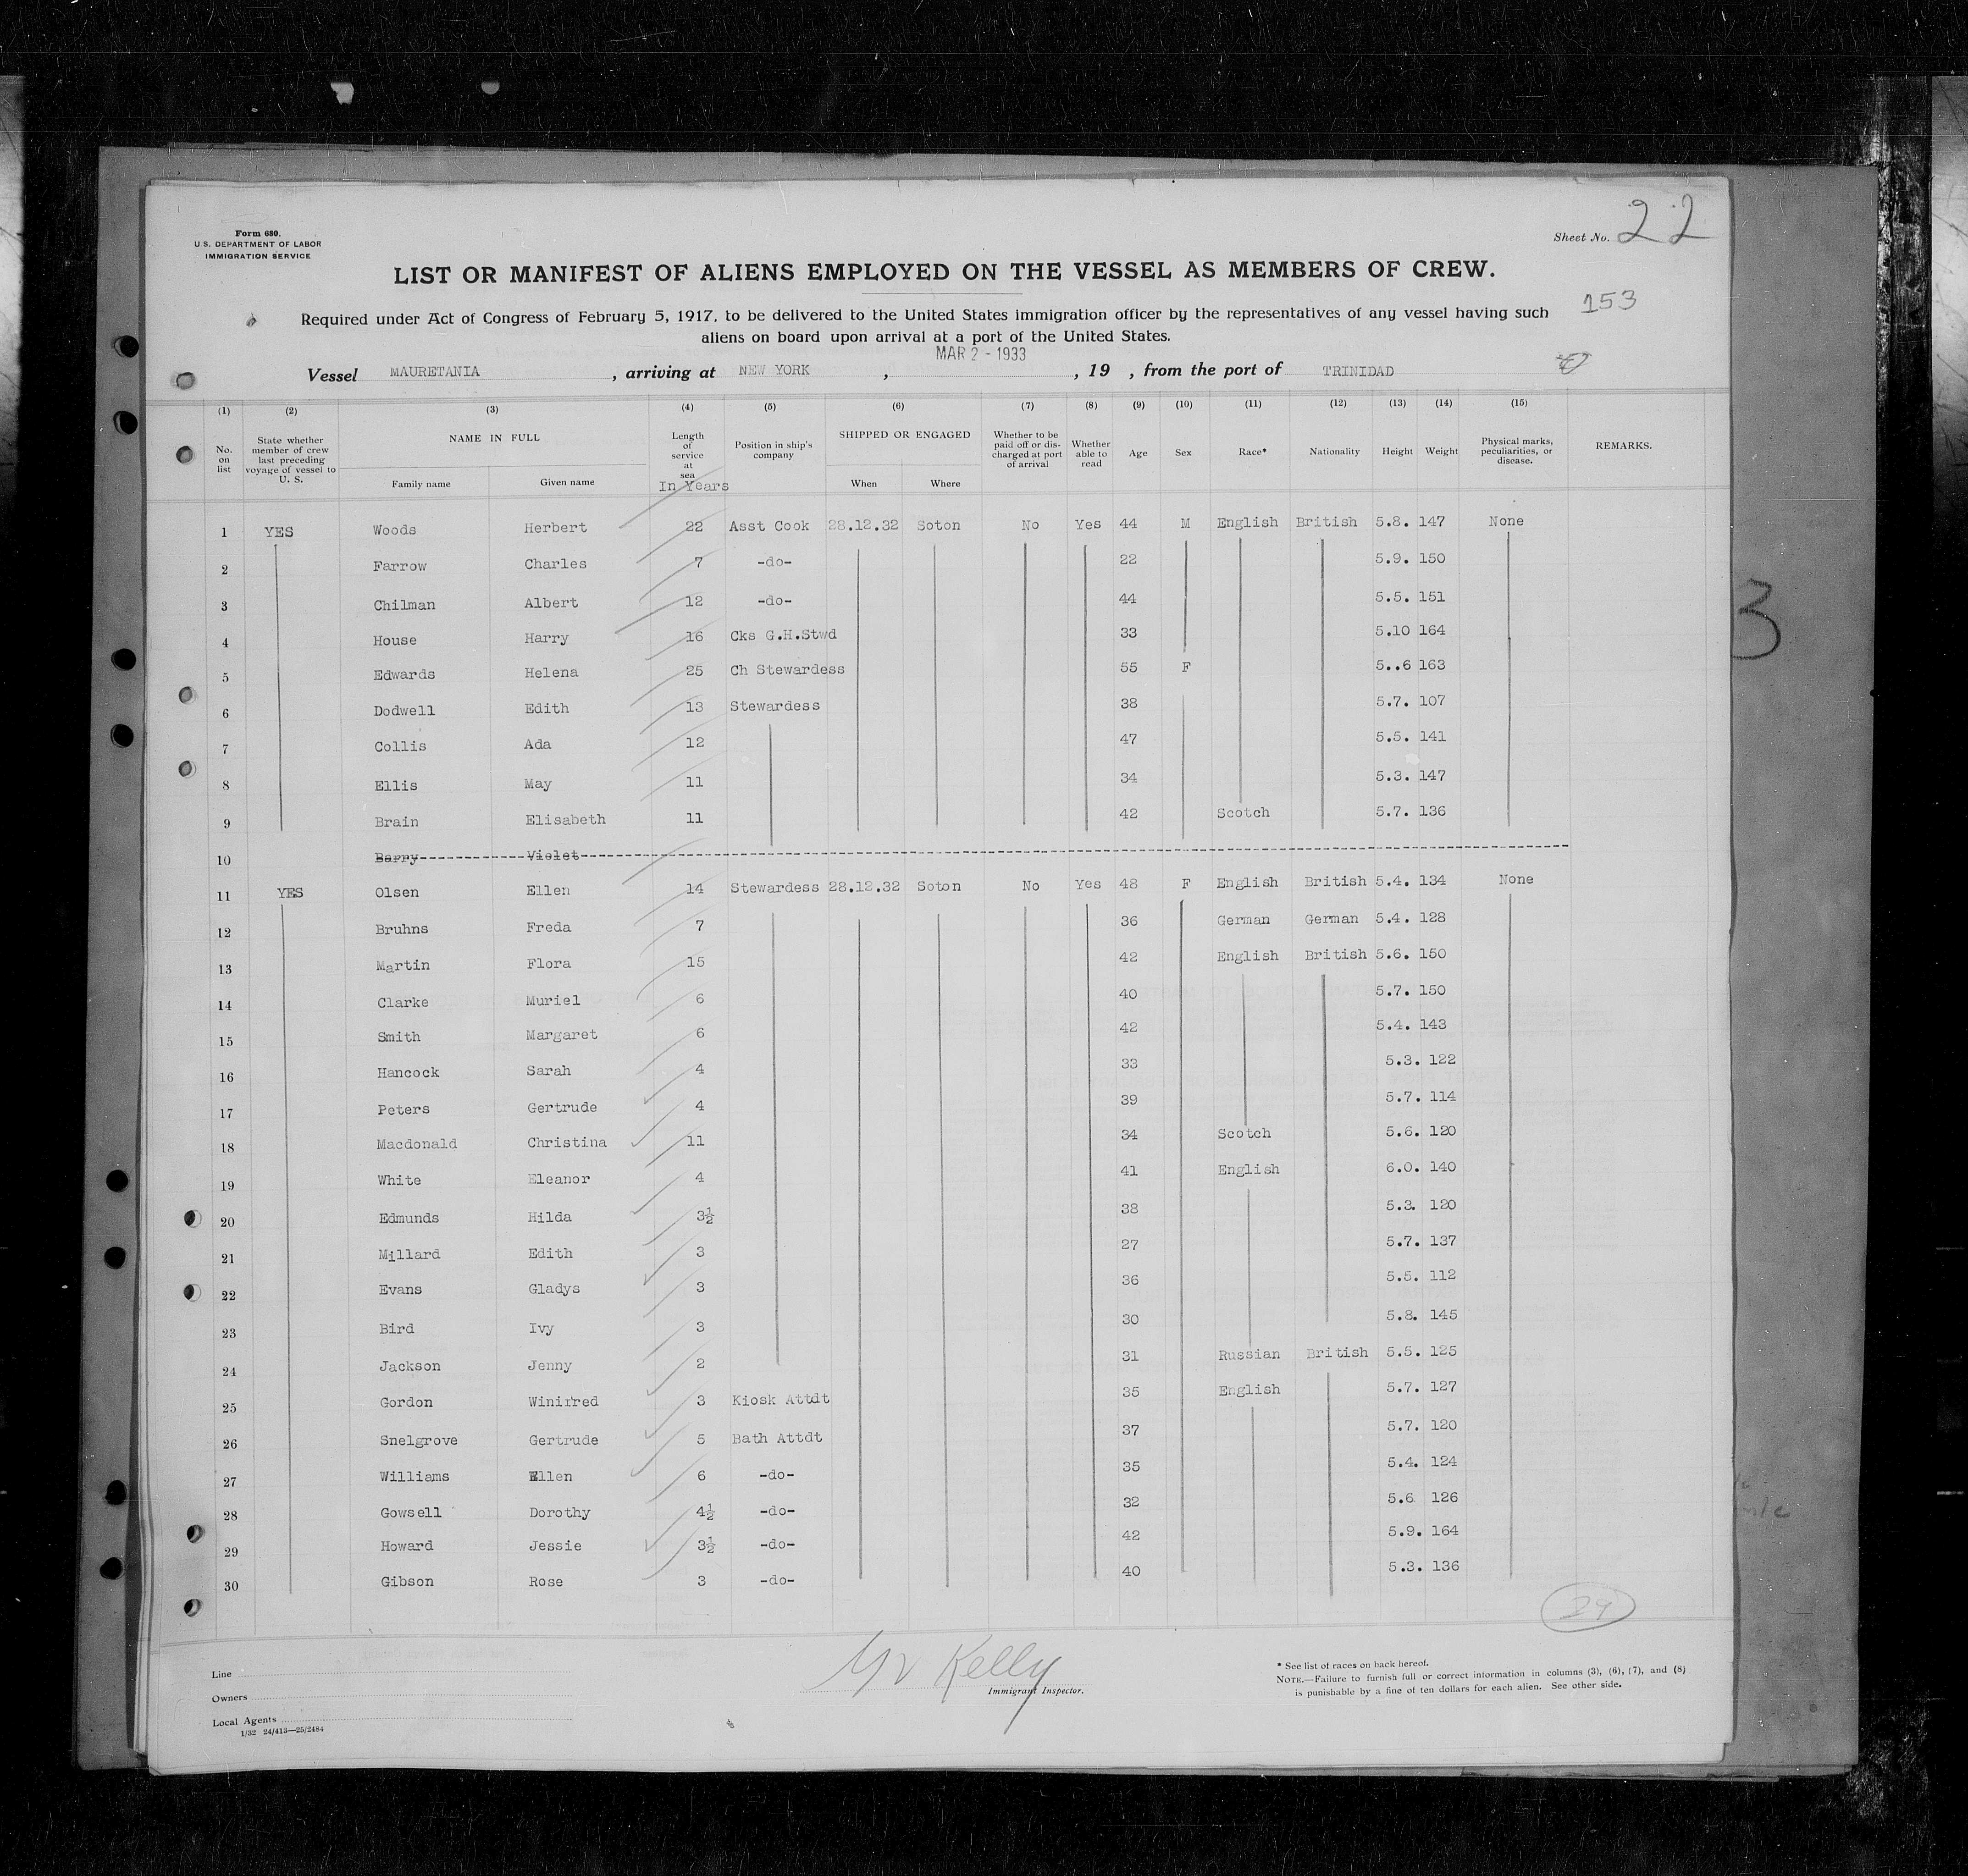 Form 680.
U.S. DEPARTMENT OF LABOR
IMMIGRATION SERVICE
Sheet No. 22
LIST OR MANIFEST OF ALIENS EMPLOYED ON THE VESSEL AS MEMBERS OF CREW.
153
Required under Act of Congress of February 5, 1917, to be delivered to the United States immigration officer by the representatives of any vessel having such
aliens on board upon arrival at a port of the United States.
MAR 2 - 1933
Vessel MAURETANIA, arriving at NEW YORK, , 19 , from the port of TRINIDAD
(1) (2) (3) (4) (5) (6) (7) (8) (9) (10) (11) (12) (13) (14) (15)
No. on list State whether member of crew last preceding voyage of vessel to U. S. NAME IN FULL Family name Given name Length of service at sea In Years Position in ship's company SHIPPED OR ENGAGED When Where Whether to be paid off or discharged at port of arrival Whether able to read Age Sex Race* Nationality Height Weight Physical marks, peculiarities, or disease. REMARKS.
1 YES Woods Herbert 22 Asst Cook 28.12.32 Soton No Yes 44 M English British 5.8. 147 None
2 Farrow Charles 7 -do- 22 5.9. 150
3 Chilman Albert 12 -do- 44 5.5. 151
4 House Harry 16 Cks G.H.Stwd 33 5.10 164
5 Edwards Helena 25 Ch Stewardess 55 F 5..6 163
6 Dodwell Edith 13 Stewardess 38 5.7. 107
7 Collis Ada 12 47 5.5. 141
8 Ellis May 11 34 5.3. 147
9 Brain Elisabeth 11 42 Scotch 5.7. 136
10 Barry Violet
11 YES Olsen Ellen 14 Stewardess 28.12.32 Soton No Yes 48 F English British 5.4. 134 None
12 Bruhns Freda 7 36 German German 5.4. 128
13 Martin Flora 15 42 English British 5.6. 150
14 Clarke Muriel 6 40 5.7. 150
15 Smith Margaret 6 42 5.4. 143
16 Hancock Sarah 4 33 5.3. 122
17 Peters Gertrude 4 39 5.7. 114
18 Macdonald Christina 11 34 Scotch 5.6. 120
19 White Eleanor 4 41 English 6.0. 140
20 Edmunds Hilda 3½ 38 5.3. 120
21 Millard Edith 3 27 5.7. 137
22 Evans Gladys 3 36 5.5. 112
23 Bird Ivy 3 30 5.8. 145
24 Jackson Jenny 2 31 Russian British 5.5. 125
25 Gordon Winifred 3 Kiosk Attdt 35 English 5.7. 127
26 Snelgrove Gertrude 5 Bath Attdt 37 5.7. 120
27 Williams Ellen 6 -do- 35 5.4. 124
28 Gowsell Dorothy 4½ -do- 32 5.6 126
29 Howard Jessie 3½ -do- 42 5.9. 164
30 Gibson Rose 3 -do- 40 5.3. 136
29
3
Line
Owners
Local Agents
1/32 24/413—25/2484
Kelly
Immigrant Inspector.
* See list of races on back hereof.
NOTE.—Failure to furnish full or correct information in columns (3), (6), (7), and (8)
is punishable by a fine of ten dollars for each alien. See other side.